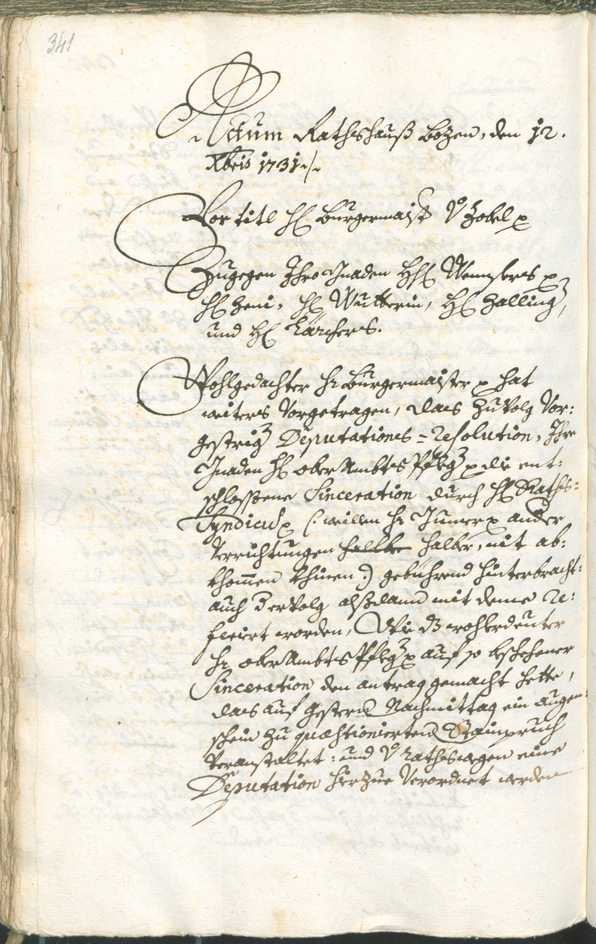 341
Actum Rathshauß Bozen, den 12.
Xbris 1731 ./.
Vor titl H: Burgermaister v Zobel p
Zugegen Ihro Gnaden HH:
H: Zeni, H: Wutterin, H: Zalling,
und H: Kärcher.
Wohlgedachter H: Burgermaister p hat
weiters vorgetragen, das zuvolg vor:
gestrig Deputations = resolution, Ihro
Gnaden H: ober Ambts Pfleg p die ent:
schlossene Sinceration durch H: Raths:
Syndicus p (: weillen H: Innerer p ander
Verrichtungen halber, nit ab:
khommen khinen :) gebührend hinterbracht:
auch dervolg alsdann mit deme re:
feriert worden, Wie dz wohlerdeuter
H: ober Ambts Pfleg p auf so beschehener
Sinceration den antrag gemacht hette,
das auf gestern Nachmittag ein augen:
schein zu quaestionierten Stainpruch
veranstaltet: und v Raths wegen eine
Deputation hierzue verordnet werden